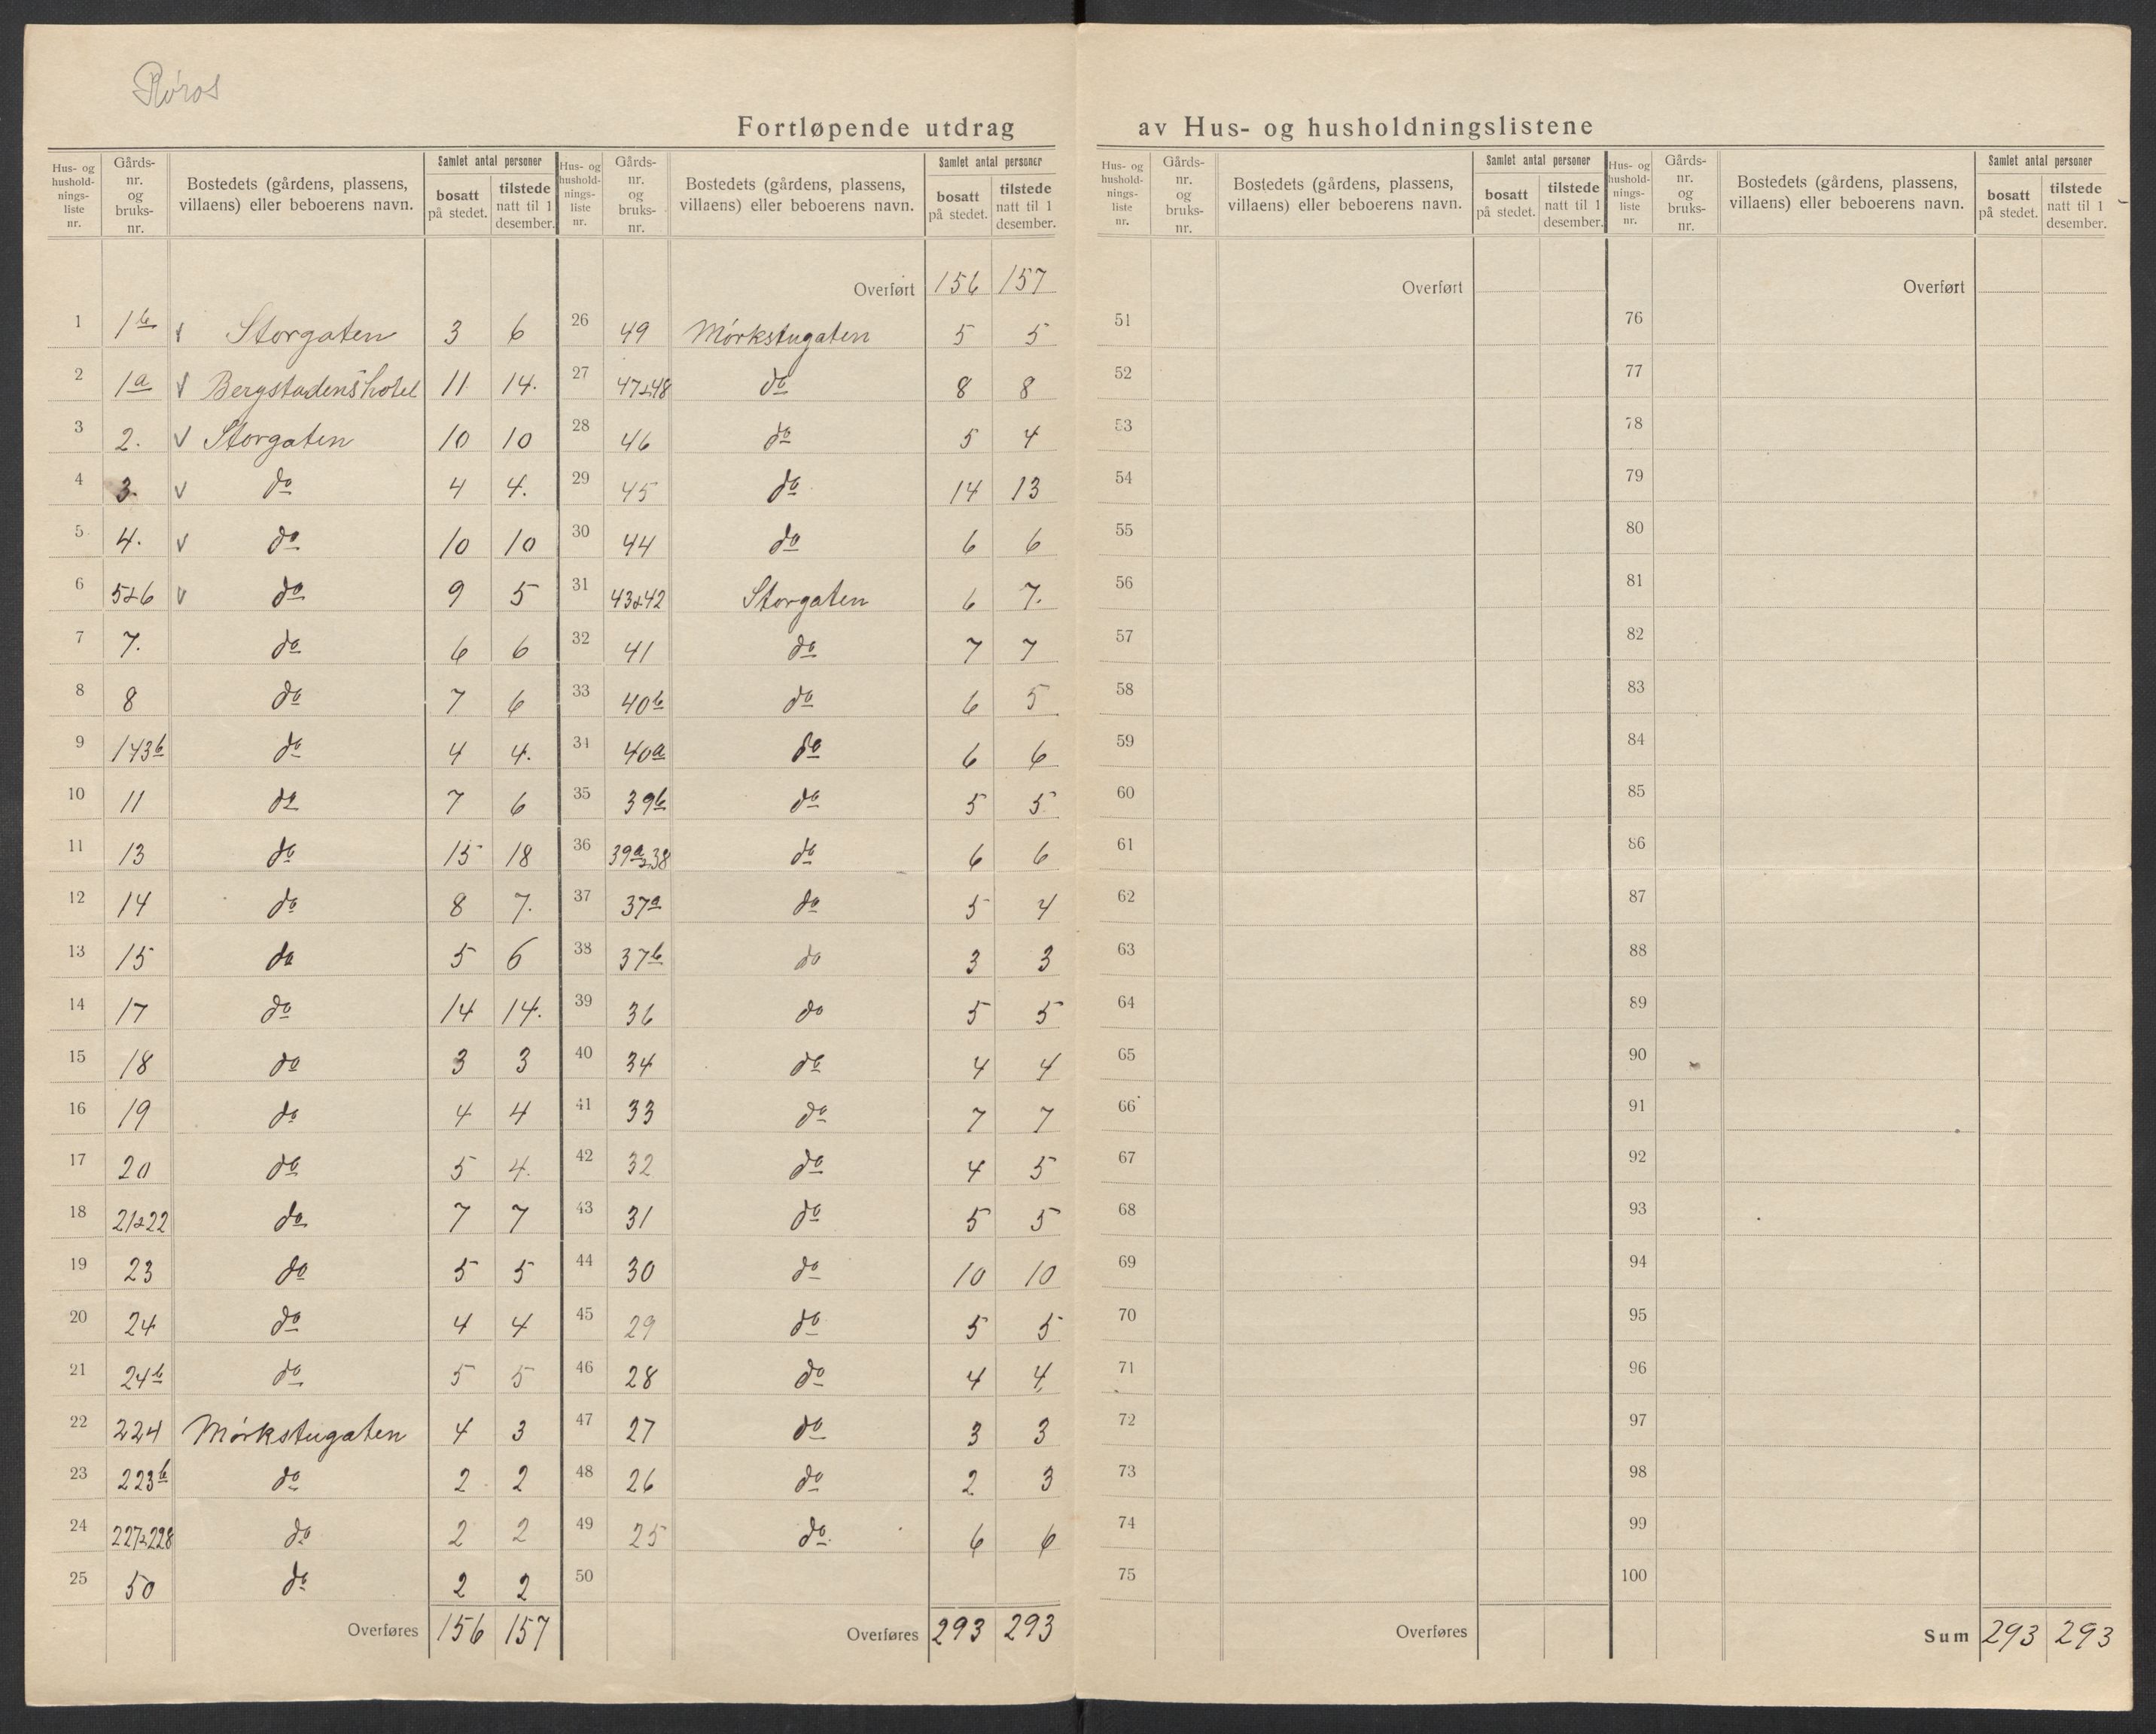 Røros
Fortløpende utdrag av Hus- og husholdningslistene
Hus- og hushold-nings-liste nr. | Gårds-nr. og bruks-nr. | Bostedets (gårdens, plassens, villaens) eller beboerens navn. | Samlet antal personer | bosatt på stedet. | tilstede natt til 1 desember.
1 | 1b | v Storgaten | 3 | 6
2 | 1a | v Bergstadens hotel | 11 | 14.
3 | 2. | v Storgaten | 10 | 10
4 | 3. | v do | 4 | 4.
5 | 4. | v do | 10 | 10
6 | 5&6 | v do | 9 | 5
7 | 7. | do | 6 | 6
8 | 8 | do | 7 | 6
9 | 143b | do | 4 | 4.
10 | 11 | do | 7 | 6
11 | 13 | do | 15 | 18
12 | 14 | do | 8 | 7.
13 | 15 | do | 5 | 6
14 | 17 | do | 14 | 14.
15 | 18 | do | 3 | 3
16 | 19 | do | 4 | 4
17 | 20 | do | 5 | 4.
18 | 21&22 | do | 7 | 7
19 | 23 | do | 5 | 5
20 | 24 | do | 4 | 4
21 | 24b | do | 5 | 5
22 | 224 | Mørkstugaten | 4 | 3
23 | 223b | do | 2 | 2
24 | 227&228 | do | 2 | 2
25 | 50 | do | 2 | 2
Overføres | 156 | 157
Hus- og hushold-nings-liste nr. | Gårds-nr. og bruks-nr. | Bostedets (gårdens, plassens, villaens) eller beboerens navn. | Samlet antal personer | bosatt på stedet. | tilstede natt til 1 desember.
Overført | 156 | 157
26 | 49 | Mørkstugaten | 5 | 5
27 | 47&48 | do | 8 | 8
28 | 46 | do | 5 | 4
29 | 45 | do | 14 | 13
30 | 44 | do | 6 | 6
31 | 43&42 | Storgaten | 6 | 7.
32 | 41 | do | 7 | 7
33 | 40b | do | 6 | 5
34 | 40a | do | 6 | 6
35 | 39b | do | 5 | 5
36 | 39a&38 | do | 6 | 6
37 | 37a | do | 5 | 4
38 | 37b | do | 3 | 3
39 | 36 | do | 5 | 5
40 | 34 | do | 4 | 4
41 | 33 | do | 7 | 7
42 | 32 | do | 4 | 5
43 | 31 | do | 5 | 5
44 | 30 | do | 10 | 10
45 | 29 | do | 5 | 5
46 | 28 | do | 4 | 4
47 | 27 | do | 3 | 3
48 | 26 | do | 2 | 3
49 | 25 | do | 6 | 6
50
Overføres | 293 | 293
Hus- og hushold-nings-liste nr. | Gårds-nr. og bruks-nr. | Bostedets (gårdens, plassens, villaens) eller beboerens navn. | Samlet antal personer | bosatt på stedet. | tilstede natt til 1 desember.
Overført
51
52
53
54
55
56
57
58
59
60
61
62
63
64
65
66
67
68
69
70
71
72
73
74
75
Overføres
Hus- og hushold-nings-liste nr. | Gårds-nr. og bruks-nr. | Bostedets (gårdens, plassens, villaens) eller beboerens navn. | Samlet antal personer | bosatt på stedet. | tilstede natt til 1 desember.
Overført
76
77
78
79
80
81
82
83
84
85
86
87
88
89
90
91
92
93
94
95
96
97
98
99
100
Sum | 293 | 293